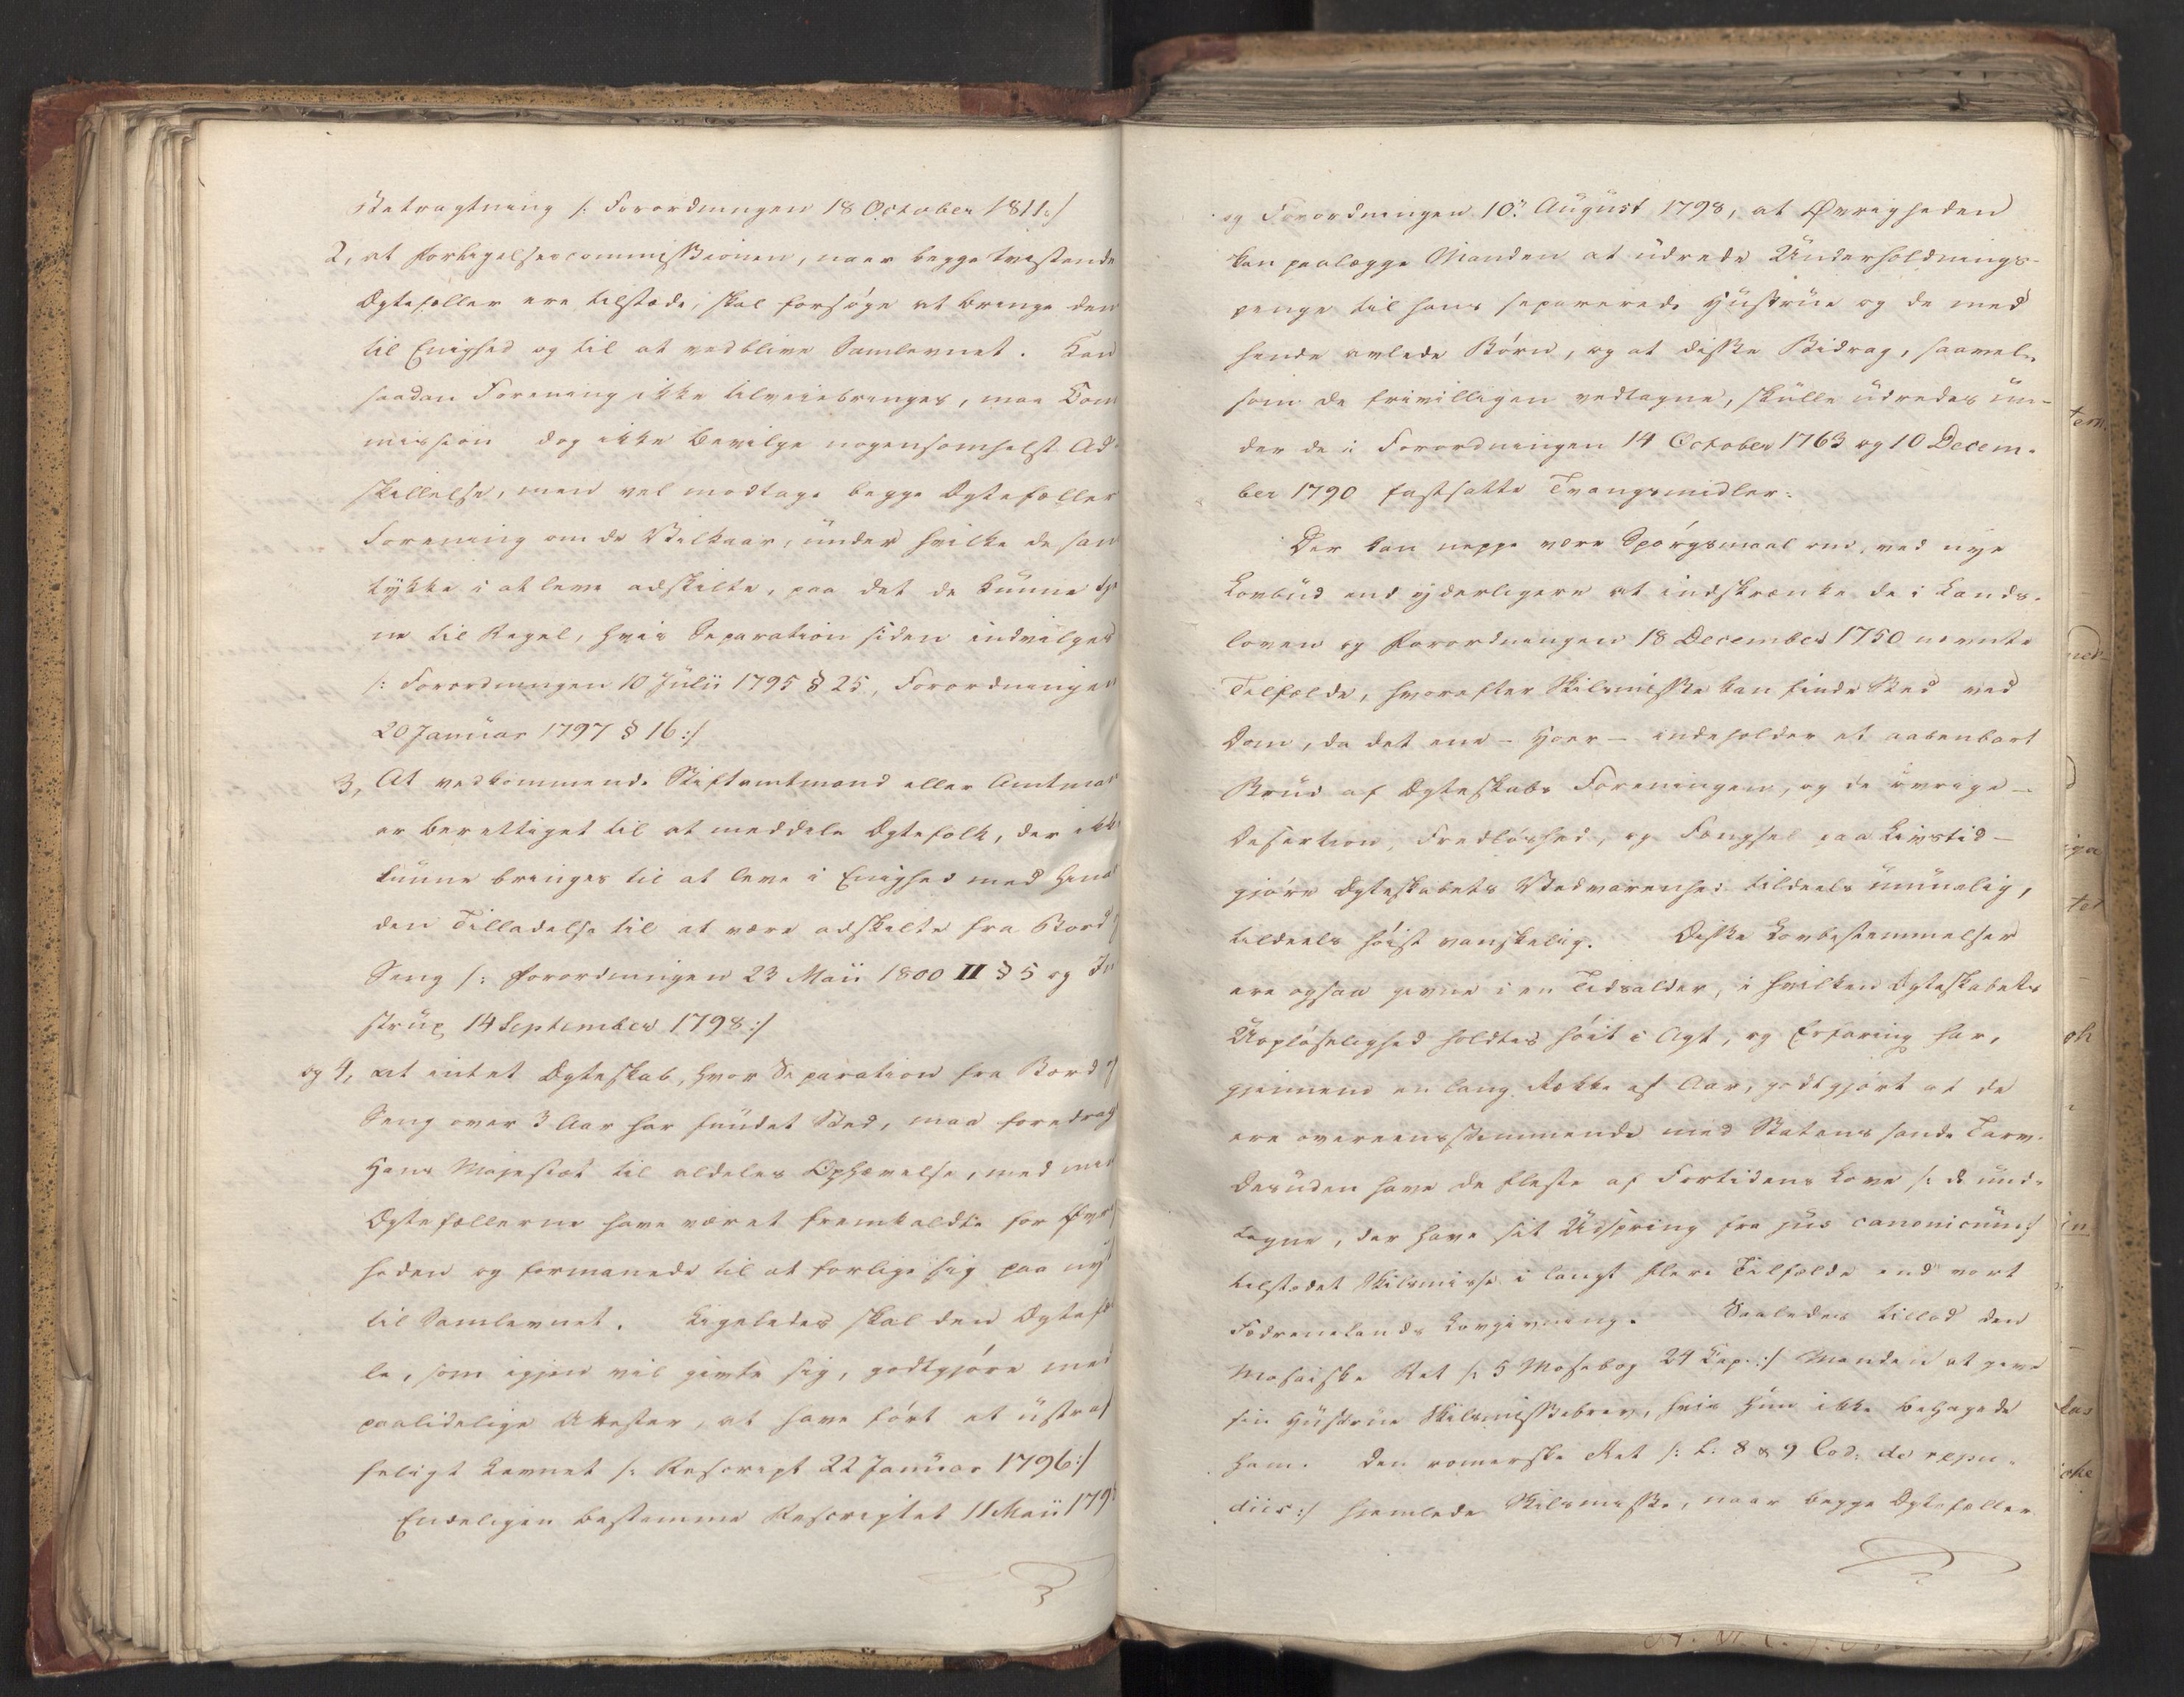 Betragtning /: Forordningen 18 October 1811:/
2, at Forligelsescommissionen, naar begge tvistende
Ægtefæller ere tilstæde, skal forsøge at bringe dem
til Enighed og til at vedblive Samlevnet. Kan
saadan Forening ikke tilveiebringes, maa Com
mission dog ikke bevilge nogensomhelst Ad-
skillelse, men vel modtage begge Ægtefællers
Forening om de Vilkaar, under hvilke de sam
tykke i at leve adskilte, paa det de kunne tje
ne til Regel, hvis Separation siden indvilges
/: Forordningen 10 Julii 1795 § 25, Forordningen
20 Januar 1797 § 16:/
3, At vedkommende Stiftamtmand eller Amtmand
er berettiget til at meddele Ægtefolk, der ikke
kunne bringes til at leve i Enighed med hinan
den Tilladelse til at være adskilte fra Bord og
Seng /: Forordningen 23 Maii 1800 II § 5 og In
strux 14 September 1798:/
og 4, at intet Ægteskab, hvor Separation fra Bord og
Seng over 3 Aar har fundet Sted, maa foredrages
Hans Majestæt til aldeles Ophævelse, med mindre
Ægtefællerne have været fremkaldte for Øvrig
heden og formanede til at forlige sig paa nyt
til Samlevnet. Ligeledes skal den Ægtefæl
le, som igjen vil givte sig, godtgjøre med
paalidelige Attester, at have ført et ustraf
feligt Levnet /: Rescript 22 Januar 1796:/
Endeligen bestemme Rescriptet 11 Maii 179
og Forordningen 10de August 1798, at Øvrigheden
kan paalægge Manden at udrede Underholdnings-
penge til hans separerede Hustrue og de med
hende avlede Børn, og at disse Bidrag, saavel
som de frivilligen vedtagne, skulle udredes un-
der de i Forordningen 14 October 1763 og 10 Decem-
ber 1790 fastsatte Tvangsmidler.
Der kan neppe være Spørgsmaal om, ved nye
Lovbud end yderligere at indskrænke de i Lands-
loven og Forordningen 18 December 1750 nævnte
Tilfælde, hvorefter Skilsmisse kan finde Sted ved
Dom, da det ene - Hoer - indeholder et aabenbart
Brud af Ægteskabs Foreningen, og de øvrige -
Desertion, Fredløshed, og Fængsel paa Livstid -
gjøre Ægteskabets Vedvarenhed tildeels umuelig,
tildeels høist vanskelig. Disse Lovbestemmelser
ere ogsaa givne i en Tidsalder, i hvilken Ægteskabets
Uopløselighed holdtes høit i Agt, og Erfaring har,
gjennem en lang Række af Aar, godtgjort at de
ere overeensstemmende med Statens sande Tarv.
Desuden have de fleste af Fortidens Love /: de und-
tagne, der have sit Udspring fra jus canonicum:/
tilstedet Skilsmisse i langt flere Tilfælde end vort
Fødrenelands Lovgivning. Saaledes tillod den
Mosaiske Ret /: 5 Mosebog 24 Cap:/ Manden at give
sin Hustrue Skilsmissebrev, hvis hun ikke behagede
ham. Den romerske Ret /: L: 8 & 9 Cod: de repu-
diis:/ hjemlede Skilsmisse, naar begge Ægtefæller